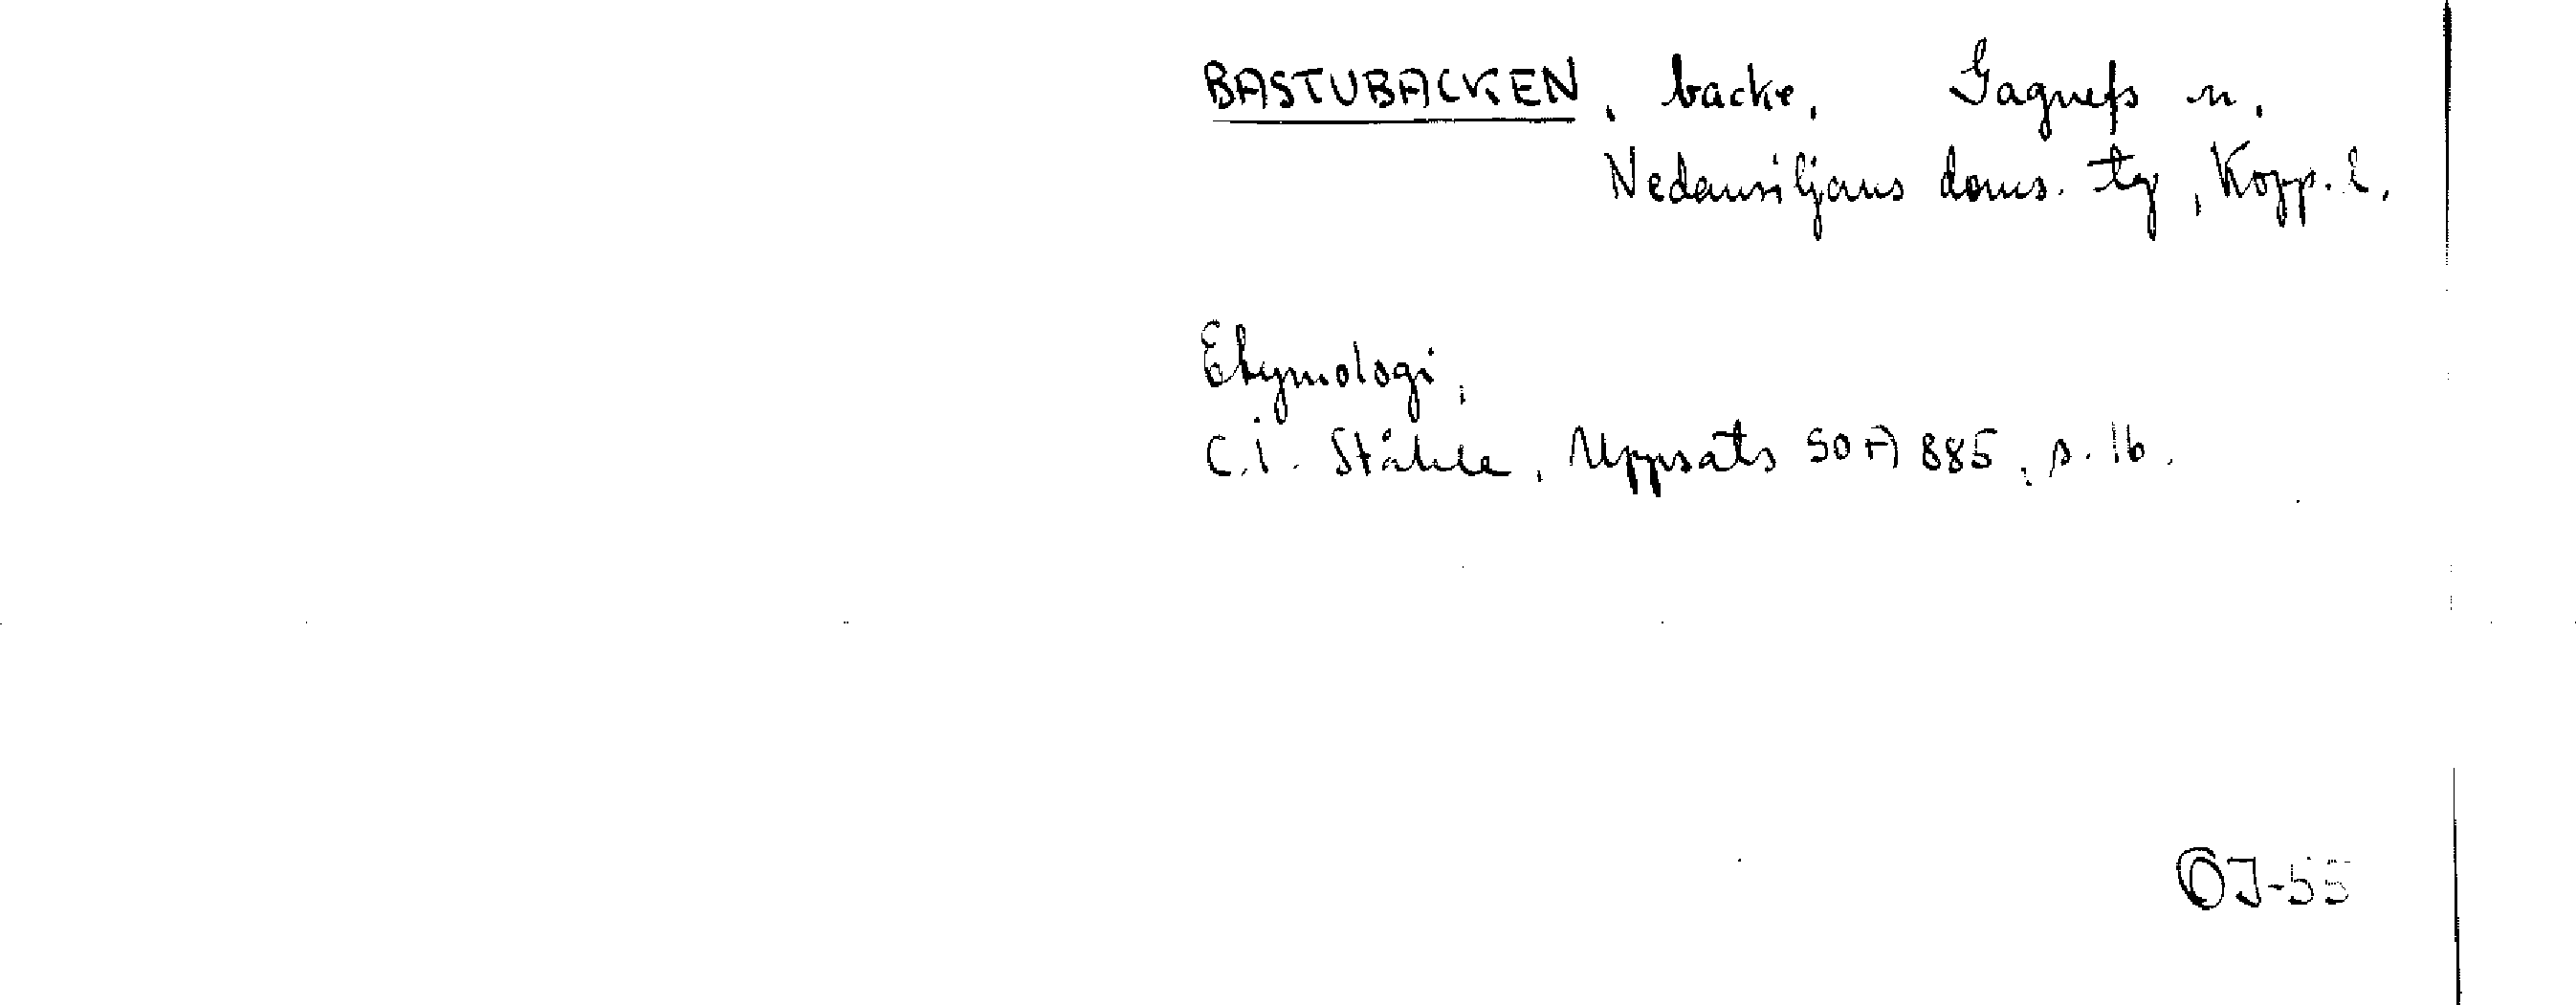 BASTUBACKEN, backe, Gagnefs sn,
Nedansiljans doms. tg, Kopp. l.
Etymologi,
C.I. Ståhle, Uppsats SOA 885, s. 16.
OJ-55